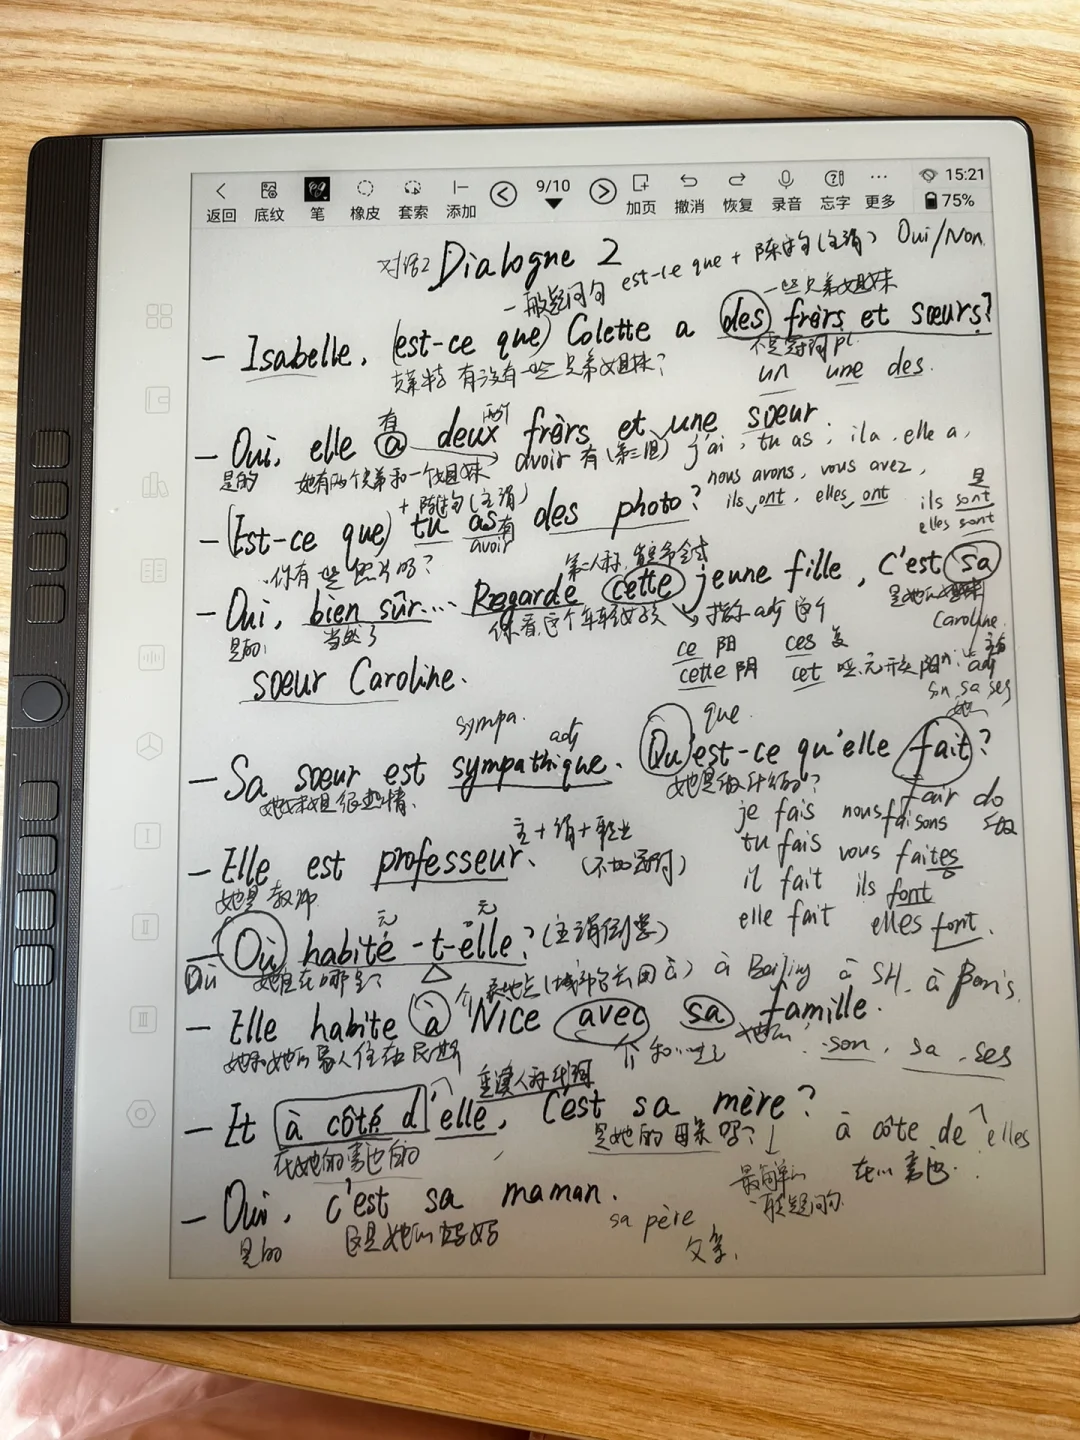 返回 底纹 笔 橡皮 套索 添加 9/10 加页 撤消 恢复 录音 忘字 更多 15:21 75%
对话2 Dialogue 2
一般疑问句 est-ce que + 陈述句(主谓) Oui/Non
一些兄弟姐妹
— Isabelle, (est-ce que) Colette a des frèrs et sœurs?
有没有一些兄弟姐妹?
un une des.
有 两个
— Oui, elle a deux frèrs et une sœur
是的 她有两个兄弟和一个姐妹
avoir 有 j'ai, tu as, il a, elle a,
nous avons, vous avez,
ils ont, elles ont
是
ils sont
elles sont
+ 陈述句(主谓)
— (Est-ce que) tu as des photo?
有
avoir
你有一些照片吗?
— Oui, bien sûr... Regarde cette jeune fille, c'est sa
当然了
你看这个年轻女孩 指示adj 这个
Caroline
ce 阳 ces 复
cette 阴 cet
adj
son sa ses
sœur Caroline.
sympa. adj que
— Sa sœur est sympathique. Qu'est-ce qu'elle fait?
她是做什么的?
fair do 做
je fais nous faisons
tu fais vous faites
il fait ils font
elle fait elles font.
主+谓+职业
— Elle est professeur. (不加冠词)
她是教师
元 元
— Où habite-t-elle? (主谓倒装)
Où 她住在哪里?
à Beijing à SH, à Paris.
— Elle habite à Nice avec sa famille.
son, sa, ses
重读人称代词
— Et à côté d'elle, c'est sa mère?
是她的母亲吗?
à côte de elles
最简单的
一般疑问句
— Oui, c'est sa maman.
是的 这是她的妈妈
sa père
父亲.